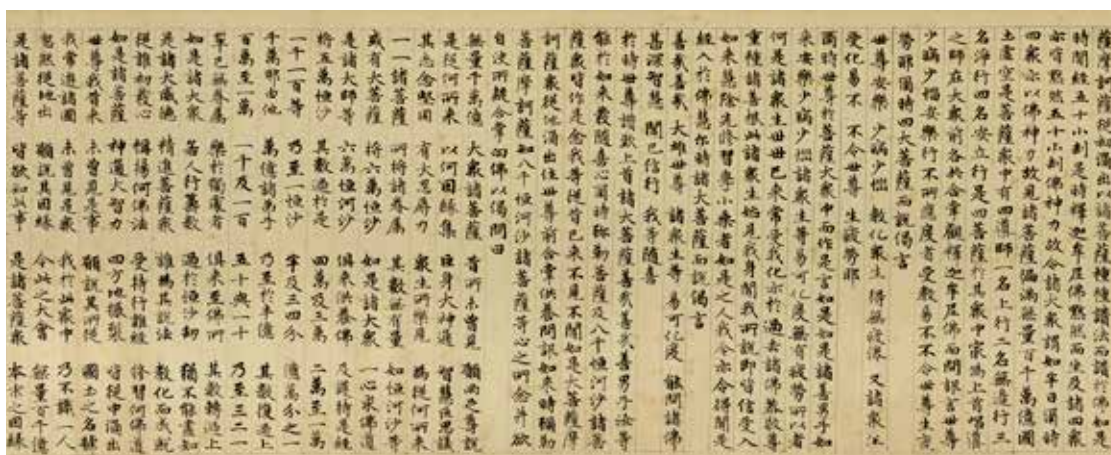 薩從初涌出以諸菩薩種種讚法而讚於佛如是
時間經五十小劫是時釋迦牟尼佛默然而坐及諸四衆
亦皆默然五十小劫佛神力故令諸大衆謂如半日爾時
四衆亦以佛神力故見諸菩薩遍滿無量百千萬億國
土虛空是菩薩衆中有四導師一名上行二名無邊行三
名淨行四名安立行是四菩薩於其衆中寂爲上首唱導
之師在大衆前各共合掌觀釋迦牟尼佛而問訊言世尊
少病少惱安樂行不所應度者受教易不不令世尊生疲
勞耶爾時四大菩薩而說偈言
世尊安樂 少病少惱 教化衆生 得無疲倦 又諸衆生
受化易不 不令世尊 生疲勞耶
爾時世尊於菩薩大衆中而作是言如是如是諸善男子如
來安樂少病少惱諸衆生等易可化度無有疲勞所以者
何是諸衆生世世已來常受我化亦於過去諸佛恭敬尊
重種諸善根此諸衆生始見我身聞我所說即皆信受入
如來慧除先修習學小乘者如是之人我今亦令得聞是
經入於佛慧尔時諸大菩薩而說偈言
善哉善哉 大雄世尊 諸衆生等 易可化度 能問諸佛
甚深智慧 聞已信行 我等隨喜
於時世尊讚歎上首諸大菩薩善哉善哉善男子汝等
能於如來發隨喜心爾時彌勒菩薩及八千恒河沙諸菩
薩衆皆作是念我等從昔已來不見不聞如是大菩薩摩
訶薩衆從地涌出住世尊前合掌供養問訊如來時彌勒
菩薩摩訶薩知八千恒河沙諸菩薩等心之所念并欲
自決所疑合掌向佛以偈問曰
無量千萬億 大衆諸菩薩 昔所未曾見 願兩足尊說
是從何所來 以何因緣集 巨身大神通 智慧叵思議
其志念堅固 有大忍辱力 衆生所樂見 爲從何所來
一一諸菩薩 所將諸眷屬 其數無有量 如恒河沙等
或有大菩薩 將六萬恒沙 如是諸大衆 一心求佛道
是諸大師等 六萬恒河沙 俱來供養佛 及護持是經
將五萬恒沙 其數過於是 四萬及三萬 二萬至一萬
一千一百等 乃至一恒沙 半及三四分 億萬分之一
千萬那由他 萬億諸弟子 乃至於半億 其數復過上
百萬至一萬 一千及一百 五十與一十 乃至三二一
單已無眷屬 樂於獨處者 俱來至佛所 其數轉過上
如是諸大衆 若人行籌數 過於恒沙劫 猶不能盡知
是諸大威德 精進菩薩衆 誰爲其說法 教化而成就
從誰初發心 稱揚何佛法 受持行誰經 修習何佛道
如是諸菩薩 神通大智力 四方地振裂 皆從中涌出
世尊我昔來 未曾見是事 願說其所從 國土之名號
我常遊諸國 未曾見是衆 我於此衆中 乃不識一人
忽然從地出 願說其因緣 今此之大會 無量百千億
是諸菩薩等 皆欲知此事 是諸菩薩衆 本末之因緣